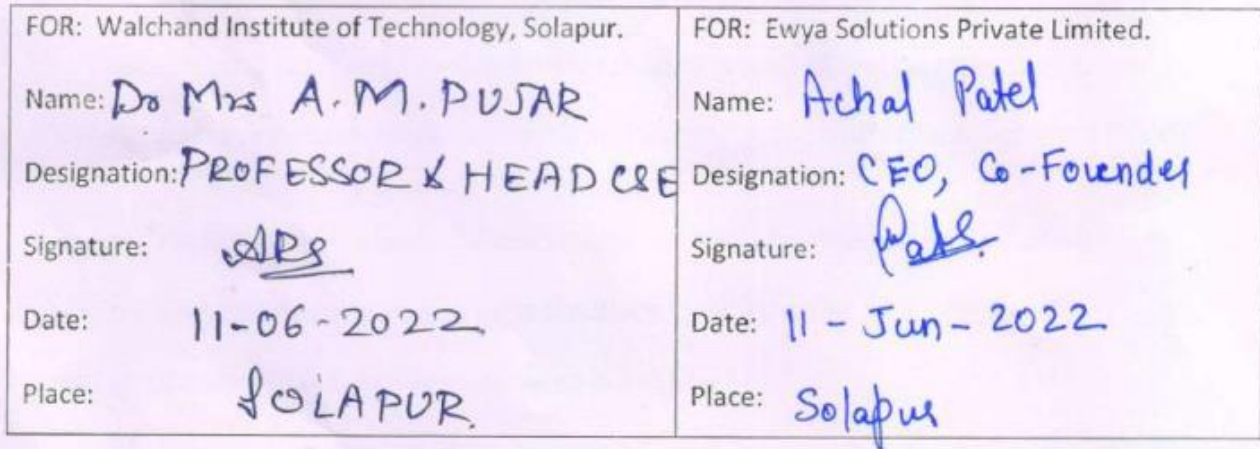 FOR: Walchand Institute of Technology, Solapur.
Name: Dr Mrs A. M. PUJAR
Designation: PROFESSOR & HEAD CSE
Signature:
Date: 11-06-2022
Place: SOLAPUR
FOR: Ewya Solutions Private Limited.
Name: Achal Patel
Designation: CEO, Co-Founder
Signature:
Date: 11 - Jun - 2022
Place: Solapur